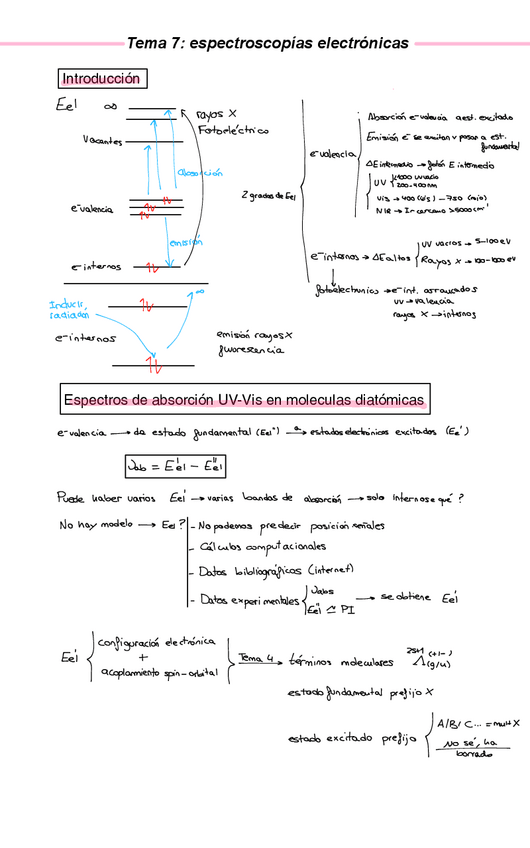 Tema 7: espectroscopías electrónicas
Introducción
Eel ∞
rayos X
Fotoeléctrico
Vacantes
Absorción
e-valencia
emisión
e-internos
Inducir,
radiación
∞
e-internos
emisión rayos X
fluorescencia
2 grados de Eel
e-valencia
Absorción e-valencia a est. excitado
Emisión e- se excitan y pasan a est.
fundamental
ΔE intermedio → fotón E intermedio
UV
200-400nm
Vis → 400 (vis) - 750 (rojo)
e-internos → ΔE altos
UV vacíos → 5-100 eV
Rayos X → 100-1000 eV
fotoelectrónica → e-int. arrancados
uv → valencia
rayos X → internos
Espectros de absorción UV-Vis en moleculas diatómicas
e-valencia → da estado fundamental (Eel") → a estados electrónicos excitados (Ee')
νab = E'el - E"el
Puede haber varios Eel' → varias bandas de absorción → solo internos e qué?
No hay modelo → Eel?
- No podemos predecir posición señales
- Cálculos computacionales
- Datos bibliográficos (internet)
- Datos experimentales
νabs
E"el ≃ PI
→ se obtiene Eel'
Eel'
configuración electrónica
+
acoplamiento spin-orbital
Tema 4 → términos moleculares 2S+1 Λ (+/-) (g/u)
estado fundamental prefijo X
estado excitado prefijo
A/B/C... = mult X
No sé, ha
borrado